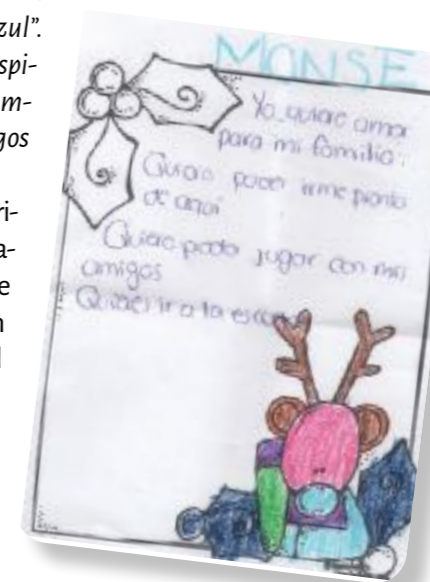 zul".
spi-
m-
gos
ri-
a-
e
MONSE
Yo quiero amor
para mi familia.
Quiero poder irme pronto
de aquí
Quiero poder jugar con mis
amigos
Quiero ir a la